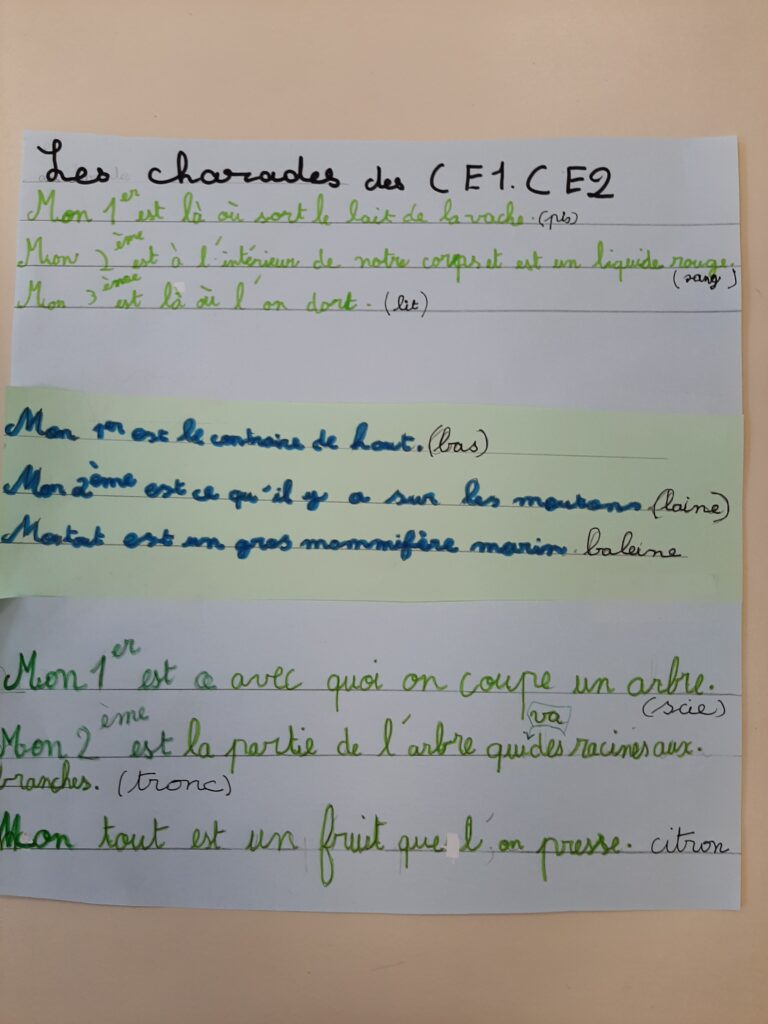 Les charades des CE1.CE2
Mon 1er est là où sort le lait de la vache. (pis)
Mon 2ème est à l'intérieur de notre corps et est un liquide rouge.
(sang)
Mon 3ème est là où l'on dort. (lit)
Mon 1er est le contraire de haut. (bas)
Mon 2ème est ce qu'il y a sur les moutons (laine)
Mon tout est un gros mammifère marin. baleine
Mon 1er est ce avec quoi on coupe un arbre.
(scie)
va
Mon 2ème est la partie de l'arbre qui des racines aux
branches. (tronc)
Mon tout est un fruit que l'on presse. citron